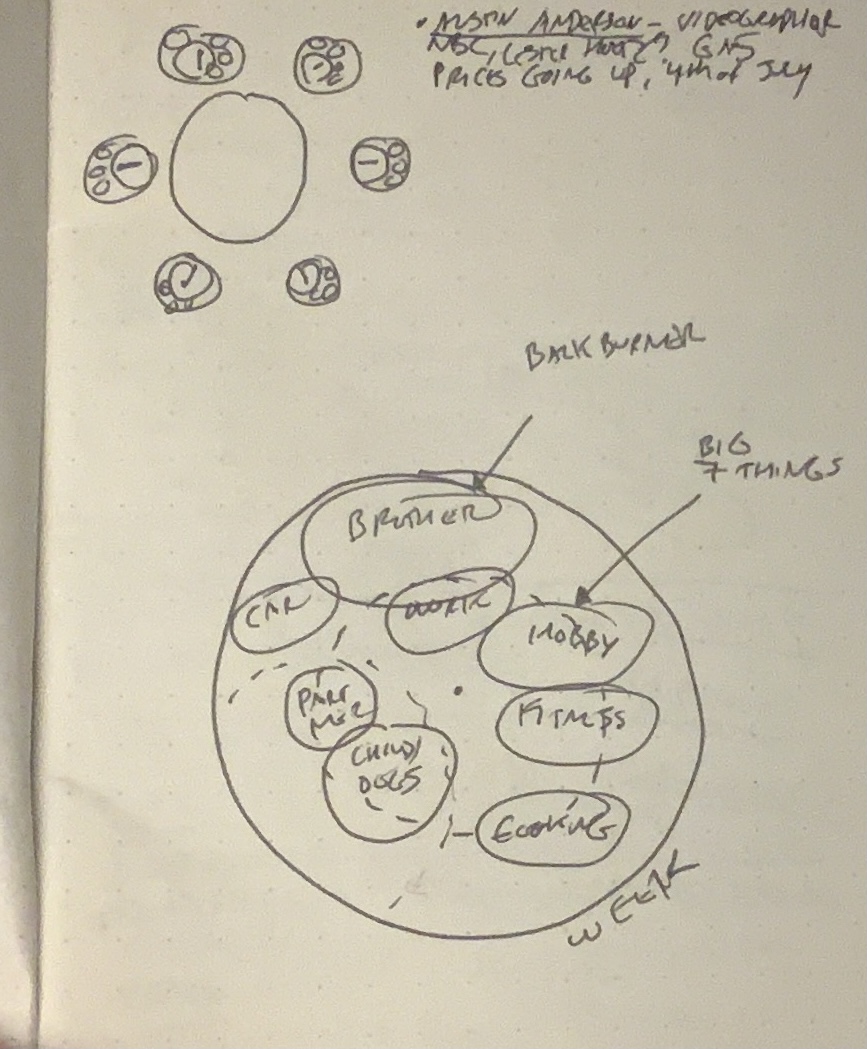 • AUSTIN ANDERSON - VIDEOGRAPHER
NBC, LESTER HOLT? GNS
PRICES GOING UP, 4th of July
BACK BURNER
BIG
7 THINGS
BROTHER
CAR
WORK
HOBBY
PART
NER
FITNESS
CHILD/
DOGS
COOKING
WEEK